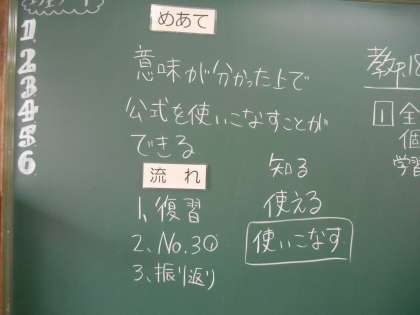 めあて
1
2
3
4
5
6
意味が分かった上で
公式を使いこなすことが
できる
流れ
1、復習
2、No.30
3、振り返り
知る
使える
使いこなす
教P18
1 全
個
学習